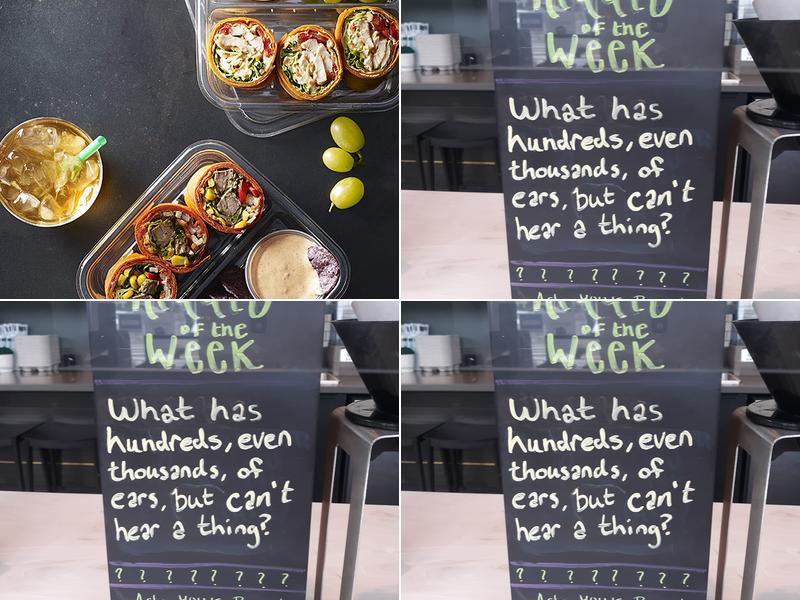 OF the
WEEK
What has
hundreds, even
thousands, of
ears, but can't
hear a thing?
? ? ? ? ? ? ? ?
OF the
WEEK
What has
hundreds, even
thousands, of
ears, but can't
hear a thing?
? ? ? ? ? ? ? ?
OF the
WEEK
What has
hundreds, even
thousands, of
ears, but can't
hear a thing?
? ? ? ? ? ? ? ?